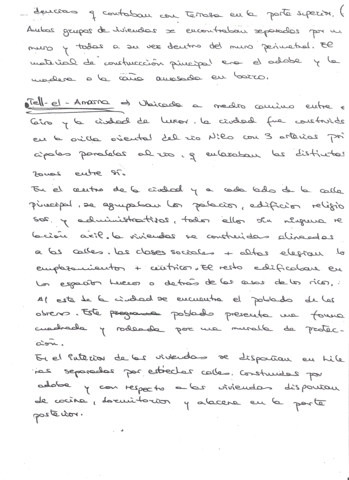 dencias y contaban con terraza en la parte superior. (
Ambos grupos de viviendas se encontraban separados por un
muro y todas a su vez dentro del muro perimetral. El
material de construcción principal era el adobe y la
madera o la caña amasada en barro.
Tell-el-Amarna → Ubicada a medio camino entre e
Cairo y la ciudad de Luxor. La ciudad fue construida
en la orilla oriental del río Nilo con 3 arterias prin
cipales paralelas al río, y enlazaban las distintas
zonas entre sí.
En el centro de la ciudad y a cada lado de la calle
principal, se agrupaban los palacios, edificios religio
sos y administrativos, todos ellos sin ninguna re
lación axil. Las viviendas se construían alineadas
a las calles. Las clases sociales + altas elegían lo
emplazamientos + céntricos. El resto edificaban en
los espacios huecos o detrás de las casas de los ricos.
Al este de la ciudad se encuentra el poblado de los
obreros. Este programa poblado presenta una forma
cuadrada y rodeada por una muralla de protec-
ción.
En el interior las viviendas se disponían en hile
ras separadas por estrechas calles. Construidas por
adobe y con respecto a las viviendas disponían
de cocina, dormitorios y alacena en la parte
posterior.